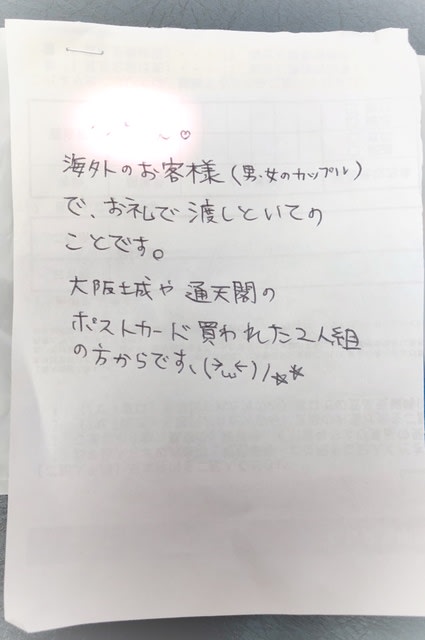 ♡
海外のお客様(男・女のカップル)
で、お礼で渡しといての
ことです。
大阪城や通天閣の
ポストカード買われた2人組
の方からです、(>ω<)/☆★